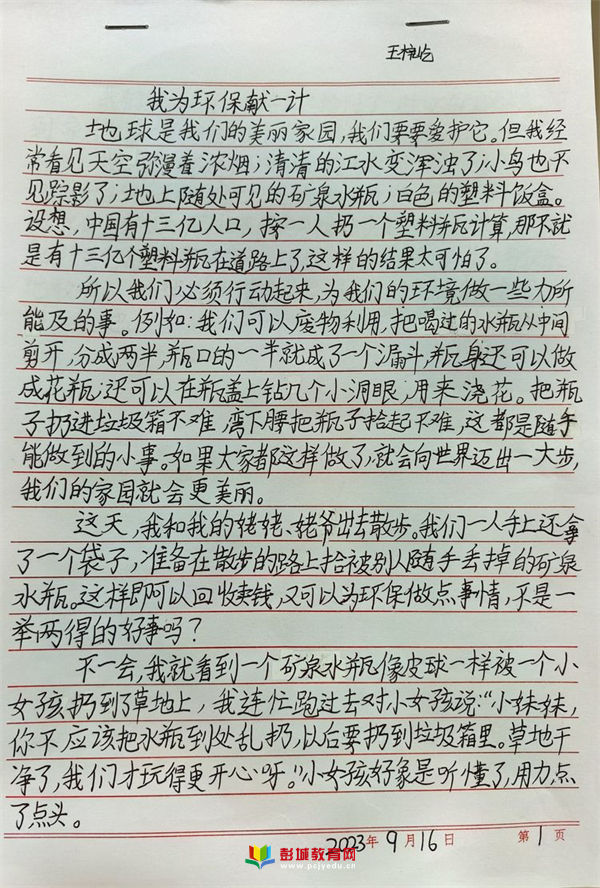 王梓屹
我为环保献一计
地球是我们的美丽家园,我们要要爱护它。但我经
常看见天空弥漫着浓烟;清清的江水变浑浊了;小鸟也不
见踪影了;地上随处可见的矿泉水瓶;白色的塑料饭盒。
设想,中国有十三亿人口,按一人扔一个塑料瓶计算,那不就
是有十三亿个塑料瓶在道路上了,这样的结果太可怕了。
所以我们必须行动起来,为我们的环境做一些力所
能及的事。例如:我们可以废物利用,把喝过的水瓶从中间
剪开,分成两半,瓶口的一半就成了一个漏斗,瓶身还可以做
成花瓶;还可以在瓶盖上钻几个小洞眼,用来浇花。把瓶
子扔进垃圾箱不难,弯下腰把瓶子拾起不难,这都是随手
能做到的小事。如果大家都这样做了,就会向世界迈出一大步,
我们的家园就会更美丽。
这天,我和我的姥姥、姥爷出去散步。我们一人手上还拿
了一个袋子,准备在散步的路上拾被别人随手丢掉的矿泉
水瓶。这样即可以回收卖钱,又可以为环保做点事情,不是一
举两得的好事吗?
不一会,我就看到一个矿泉水瓶像皮球一样被一个小
女孩扔到了草地上,我连忙跑过去对小女孩说:“小妹妹,
你不应该把水瓶到处乱扔,以后要扔到垃圾箱里。草地干
净了,我们才玩得更开心呀。”小女孩好象是听懂了,用力点
了点头。
2023年9月16日 第1页
彭城教育网
www.pcjyedu.cn